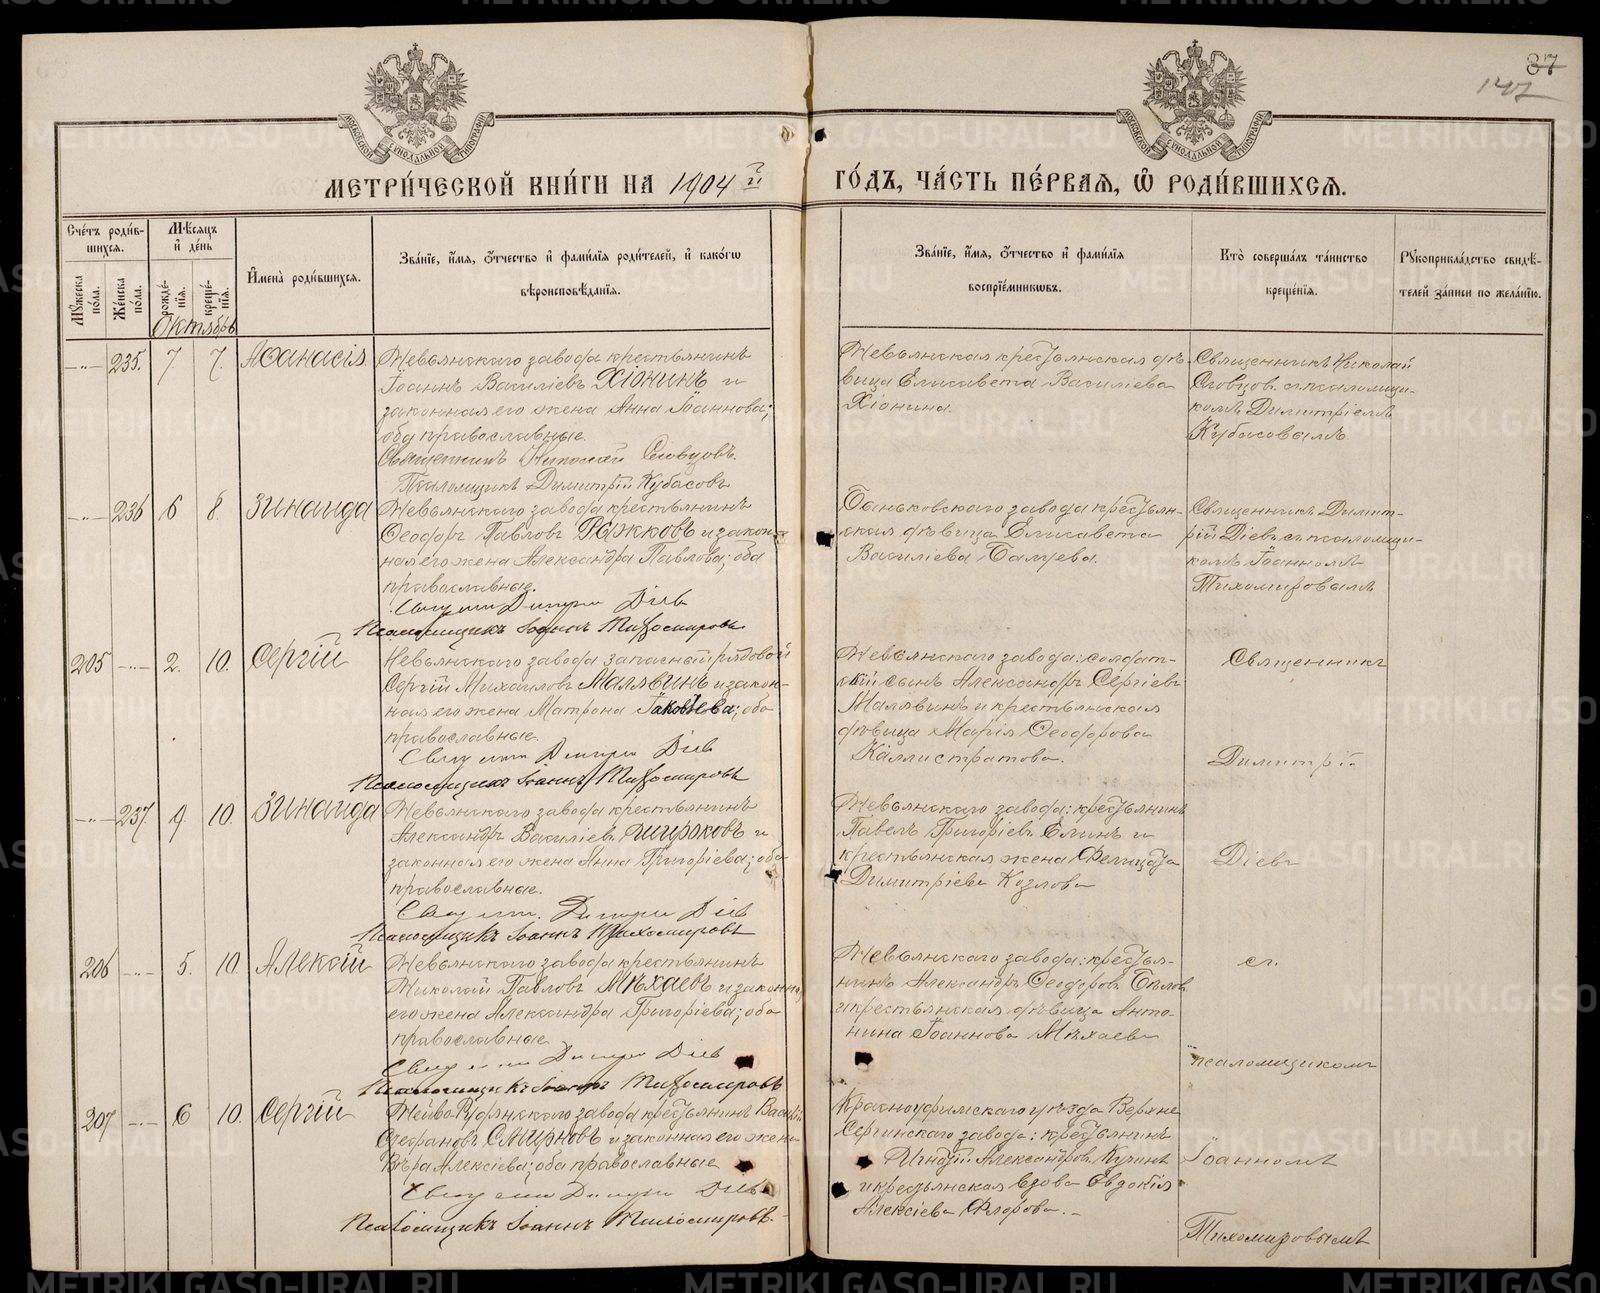 87
147
МОСКОВСКОЙ СѴНОДАЛЬНОЙ ТИПОГРАФІИ
МОСКОВСКОЙ СѴНОДАЛЬНОЙ ТИПОГРАФІИ
МЕТРИ́ЧЕСКОЙ КНИ́ГИ НА 1904 й ГО́ДЪ, ЧА́СТЬ ПЕ́РВАЯ, Ѡ҆ РОДИ́ВШИХСЯ.
Сче́тъ роди́в-
шихся.
Мꙋ́жеска по́ла.
Же́нска по́ла.
Мѣ́сяцъ
и҆ де́нь
рожде́-
нїя.
креще́-
нїя.
Октябрь
И҆мена̀ роди́вшихся.
Зва́нїе, и҆́мя, ѻ҆́тчество и҆ фами́лїя роди́телей, и҆ како́гѡ
вѣроисповѣ́данїя.
Зва́нїе, и҆́мя, ѻ҆́тчество и҆ фами́лїя
воспрїе́мникѡвъ.
Кто̀ соверша́лъ та́инство
креще́нїя.
Рꙋкоприкла́дство свидѣ́-
телей за́писи по жела́нїю.
-"- 235. 7. 7. Аѳанасія.
Невьянскаго завода крестьянинъ
Іоаннъ Василіевъ Хіонинъ и
законная его жена Анна Іоаннова;
оба православные.
Священникъ Николай Словцовъ.
Псаломщикъ Димитрій Кубасовъ
Невьянская крестьянская дѣ-
вица Елисавета Василіева
Хіонина.
Священникъ Николай
Словцов. съ псаломщи-
комъ Димитріемъ
Кубасовымъ
-"- 236 6 8. Зинаида
Невьянскаго завода крестьянинъ
Ѳеодоръ Павловъ Рѣжковъ и закон-
ная его жена Александра Павлова; оба
православные.
Священникъ Димитрій Діевъ
Псаломщикъ Іоаннъ Тихомировъ
Баньковскаго завода крестьян-
ская дѣвица Елисавета
Василіева Балуева.
Священникъ Димит-
рій Діевъ съ псаломщи-
комъ Іоанномъ
Тихомировымъ
205 -"- 2. 10. Сергій
Невьянскаго завода запасный рядовой
Сергій Михаиловъ Малявинъ и закон-
ная его жена Матрона Іаковлева; оба
православные.
Священникъ Димитрій Діевъ
Псаломщикъ Іоаннъ Тихомировъ
Невьянскаго завода: солдат-
скій сынъ Александръ Сергіевъ
Малявинъ и крестьянская
дѣвица Марія Ѳеодорова
Каллистратова.
Священникъ
Димитрій
-"- 237. 9. 10. Зинаида
Невьянскаго завода крестьянинъ
Александръ Василіевъ Широковъ и
законная его жена Анна Григоріева; оба
православные.
Священникъ Димитрій Діевъ
Псаломщикъ Іоаннъ Тихомировъ
Невьянскаго завода: крестьянинъ
Павелъ Григоріевъ Елинъ и
крестьянская жена Фелицата
Димитріева Козлова
Діевъ
206 -"- 5. 10. Алексій
Невьянскаго завода крестьянинъ
Николай Павловъ Мѣхаевъ и законная
его жена Александра Григоріева; оба
православные
Священникъ Димитрій Діевъ
Псаломщикъ Іоаннъ Тихомировъ
Невьянскаго завода: крестья-
нинъ Александръ Ѳеодоровъ Бѣловъ
и крестьянская дѣвица Анто-
нина Іоаннова Мѣхаева
съ.
псаломщикомъ
207 -"- 6 10. Сергій
Нейво-Рудянскаго завода крестьянинъ Василій
Стефановъ Смирновъ и законная его жена
Вѣра Алексіева; оба православные
Священникъ Димитрій Діевъ
Псаломщикъ Іоаннъ Тихомировъ.
Красноуфимскаго уѣзда Верхне
Сергинскаго завода: крестьянинъ
Игнатій Александровъ Кузинъ
и крестьянская вдова Евдокія
Алексіева Флорова.
Іоанномъ
Тихомировымъ
METRIKI.GASO-URAL.RU